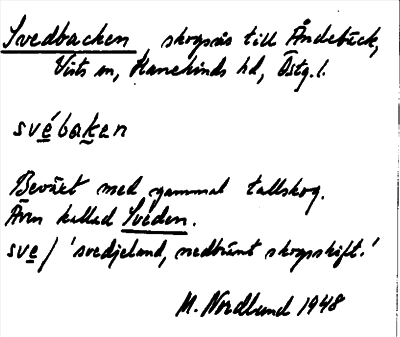 Svedbacken, skogsås till Åndebäck,
Vists sn, Hanekinds hd, Östg. l.
svébaken
Beväxt med gammal tallskog.
Även kallad Sveden.
sve / 'svedjeland, nedbränt skogsskift.'
M. Nordlund 1948